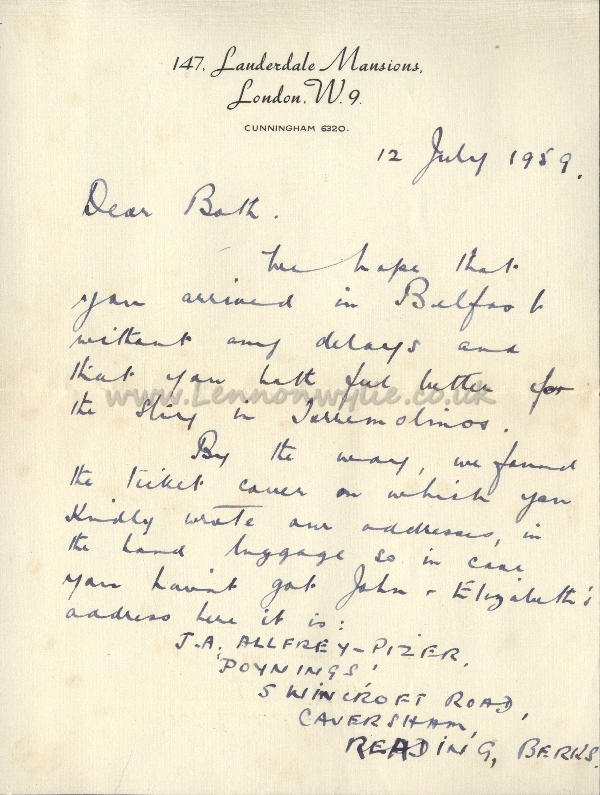 147, Lauderdale Mansions,
London, W. 9.
CUNNINGHAM 6320.
12 July 1959.
Dear Both.
We hope that
you arrived in Belfast
without any delays and
that you both feel better for
www.Lennonwylie.co.uk
the stay in Torremolinos.
By the way, we found
the ticket cover on which you
kindly wrote our addresses, in
the hand luggage so in case
you havn't got John & Elizabeth's
address here it is:
J.A. ALLFREY-PIZER,
'POYNINGS'
SWINCROFT ROAD,
CAVERSHAM,
READING, BERKS.